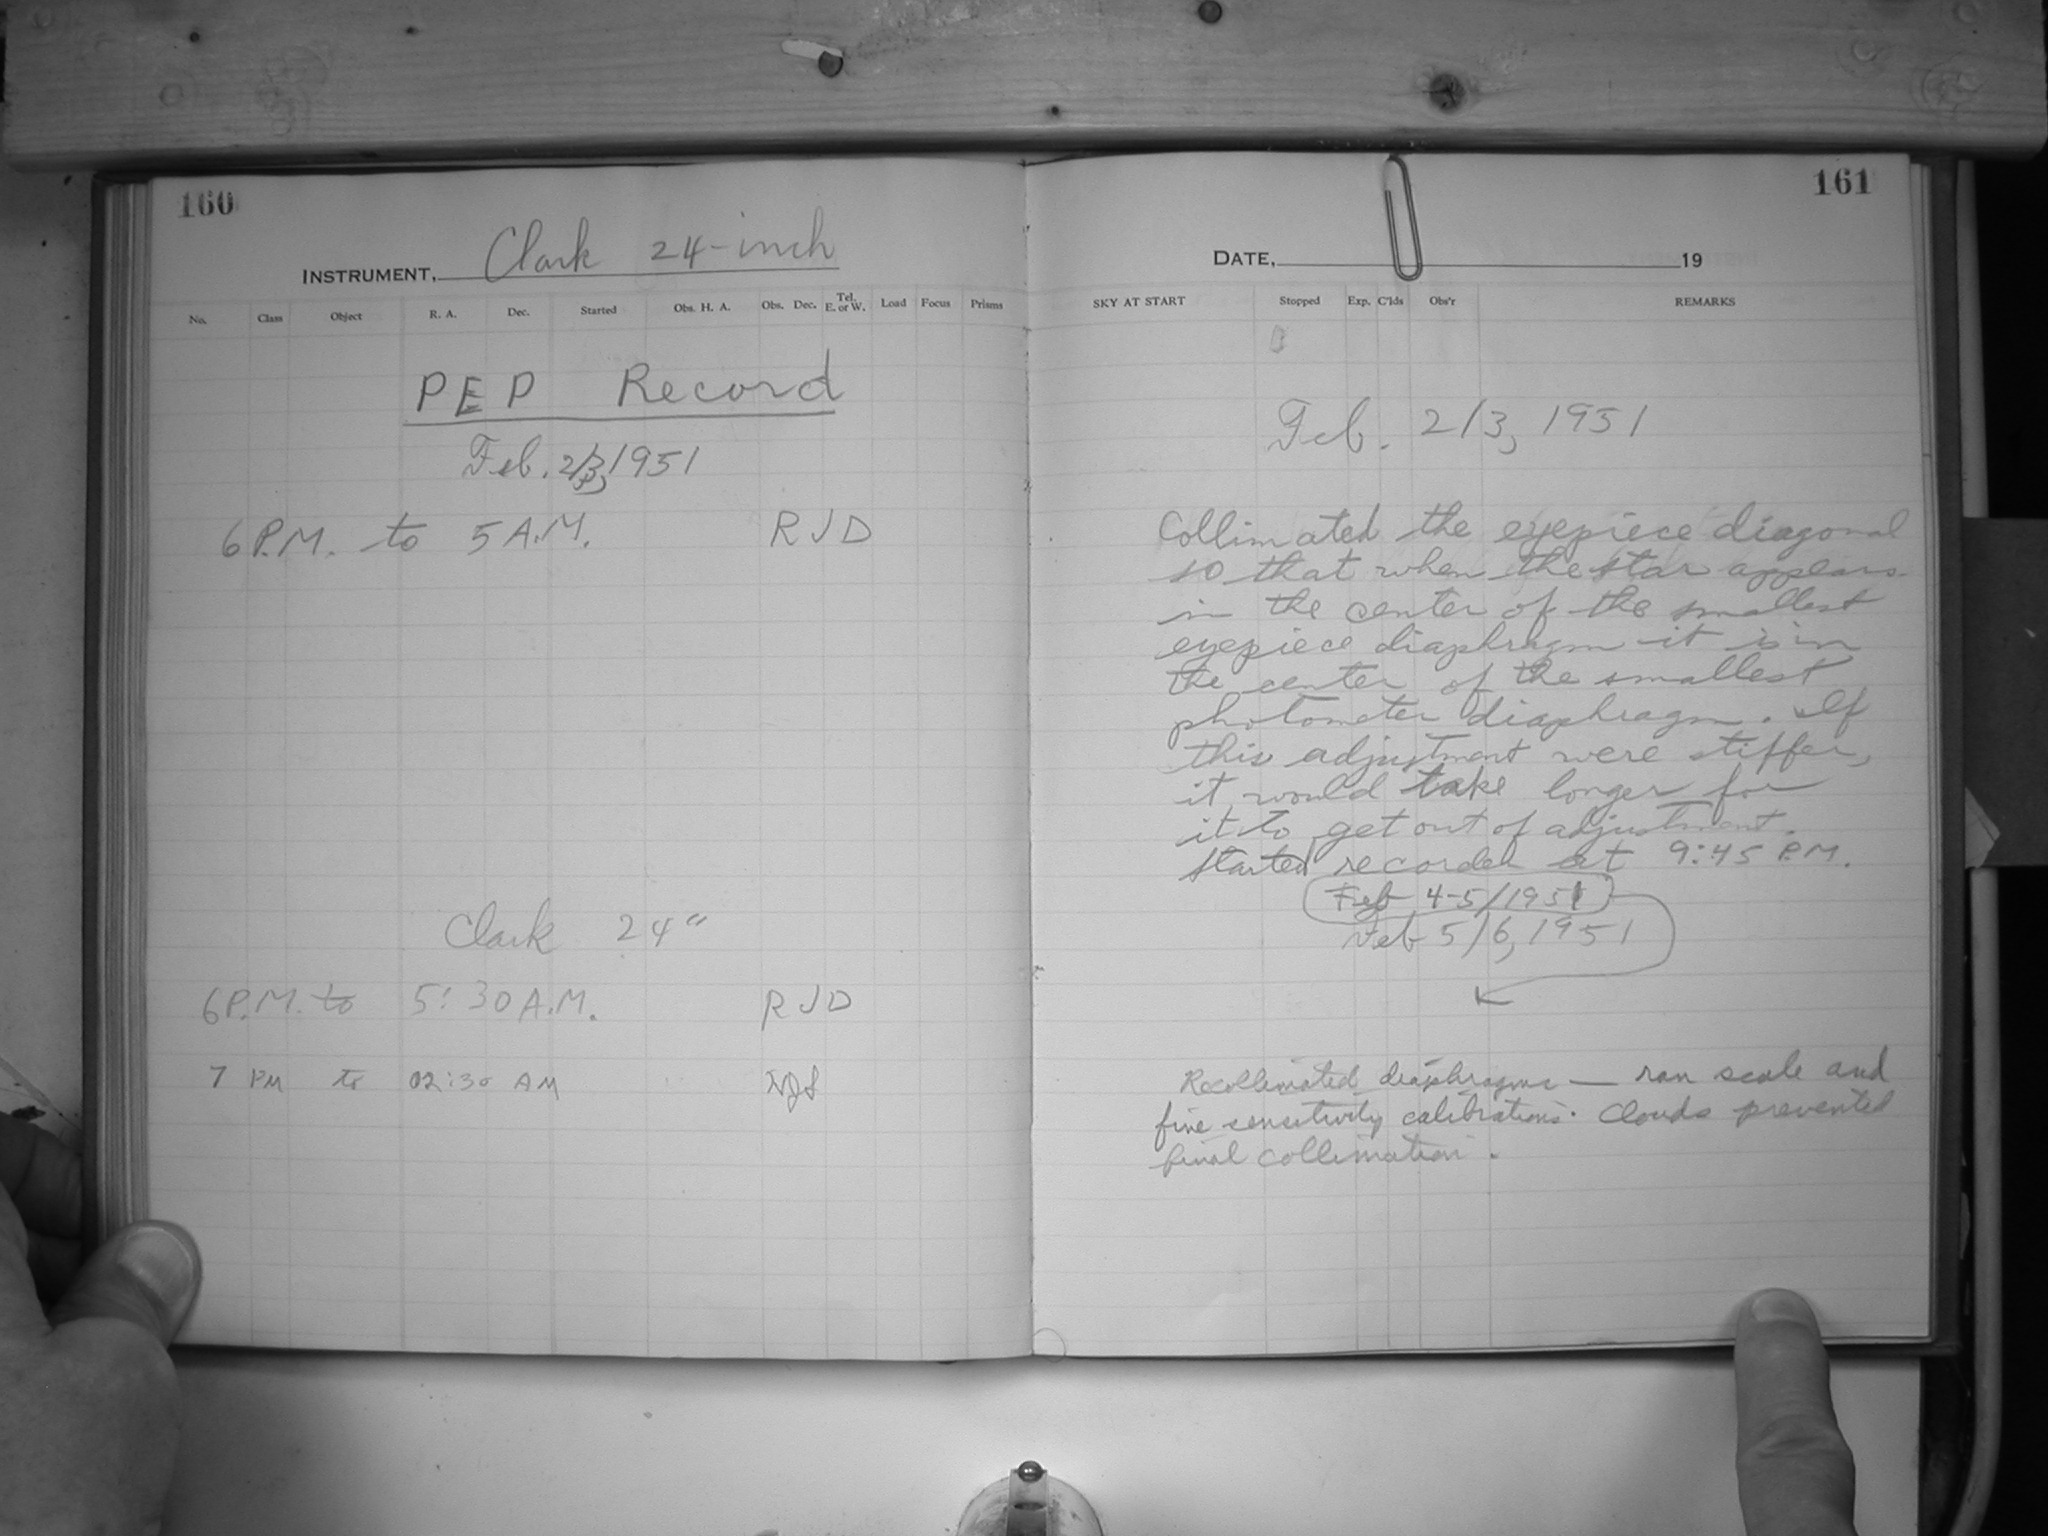 160
INSTRUMENT, Clark 24-inch
No. Class Object R. A. Dec. Started Obs. H. A. Obs. Dec. Tel. E. or W. Load Focus Prisms
PEP Record
Feb. 2/3, 1951
6 P.M. to 5 A.M. RJD
Clark 24"
6 P.M. to 5:30 A.M. RJD
7 PM to 02:30 AM
161
DATE, 19
SKY AT START Stopped Exp. C'lds Obs'r REMARKS
Feb. 2/3, 1951
Collimated the eyepiece diagonal
so that when the star appears
in the center of the smallest
eyepiece diaphragm it is in
the center of the smallest
photometer diaphragm. If
this adjustment were stiffer,
it would take longer for
it to get out of adjustment.
Started recorder at 9:45 P.M.
Feb 4-5/1951
Feb 5/6, 1951
Recollimated diaphragms — ran scale and
fine sensitivity calibrations. Clouds prevented
final collimation.